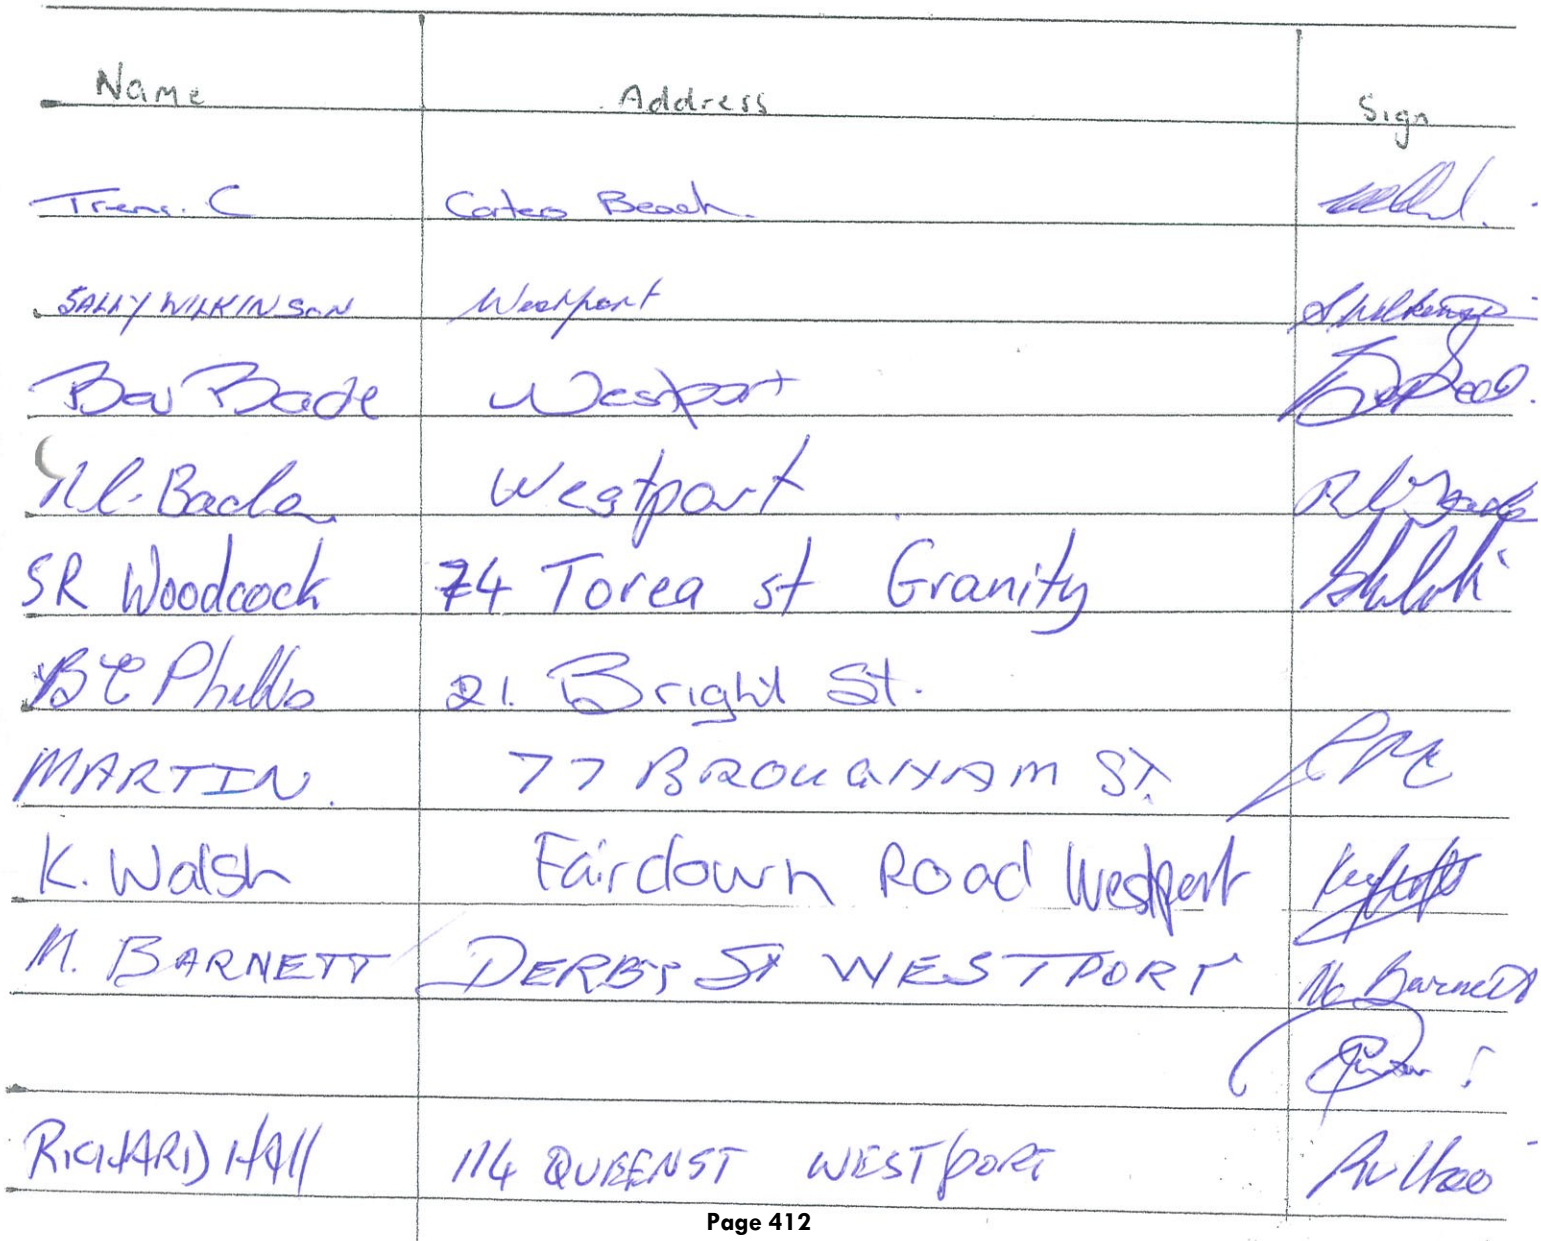 Name Address Sign
C Carters Beach.
SALLY WILKINSON Westport S Wilkinson
Bev Bade Westport
Bade Westport
SR Woodcock 74 Torea st Granity
B E Phillips 21. Bright St.
MARTIN. 77 BROUGHAM ST.
K. Walsh Fairdown Road Westport
M. BARNETT DERBY ST WESTPORT M Barnett
RICHARD HALL 114 QUEEN ST WESTPORT
Page 412